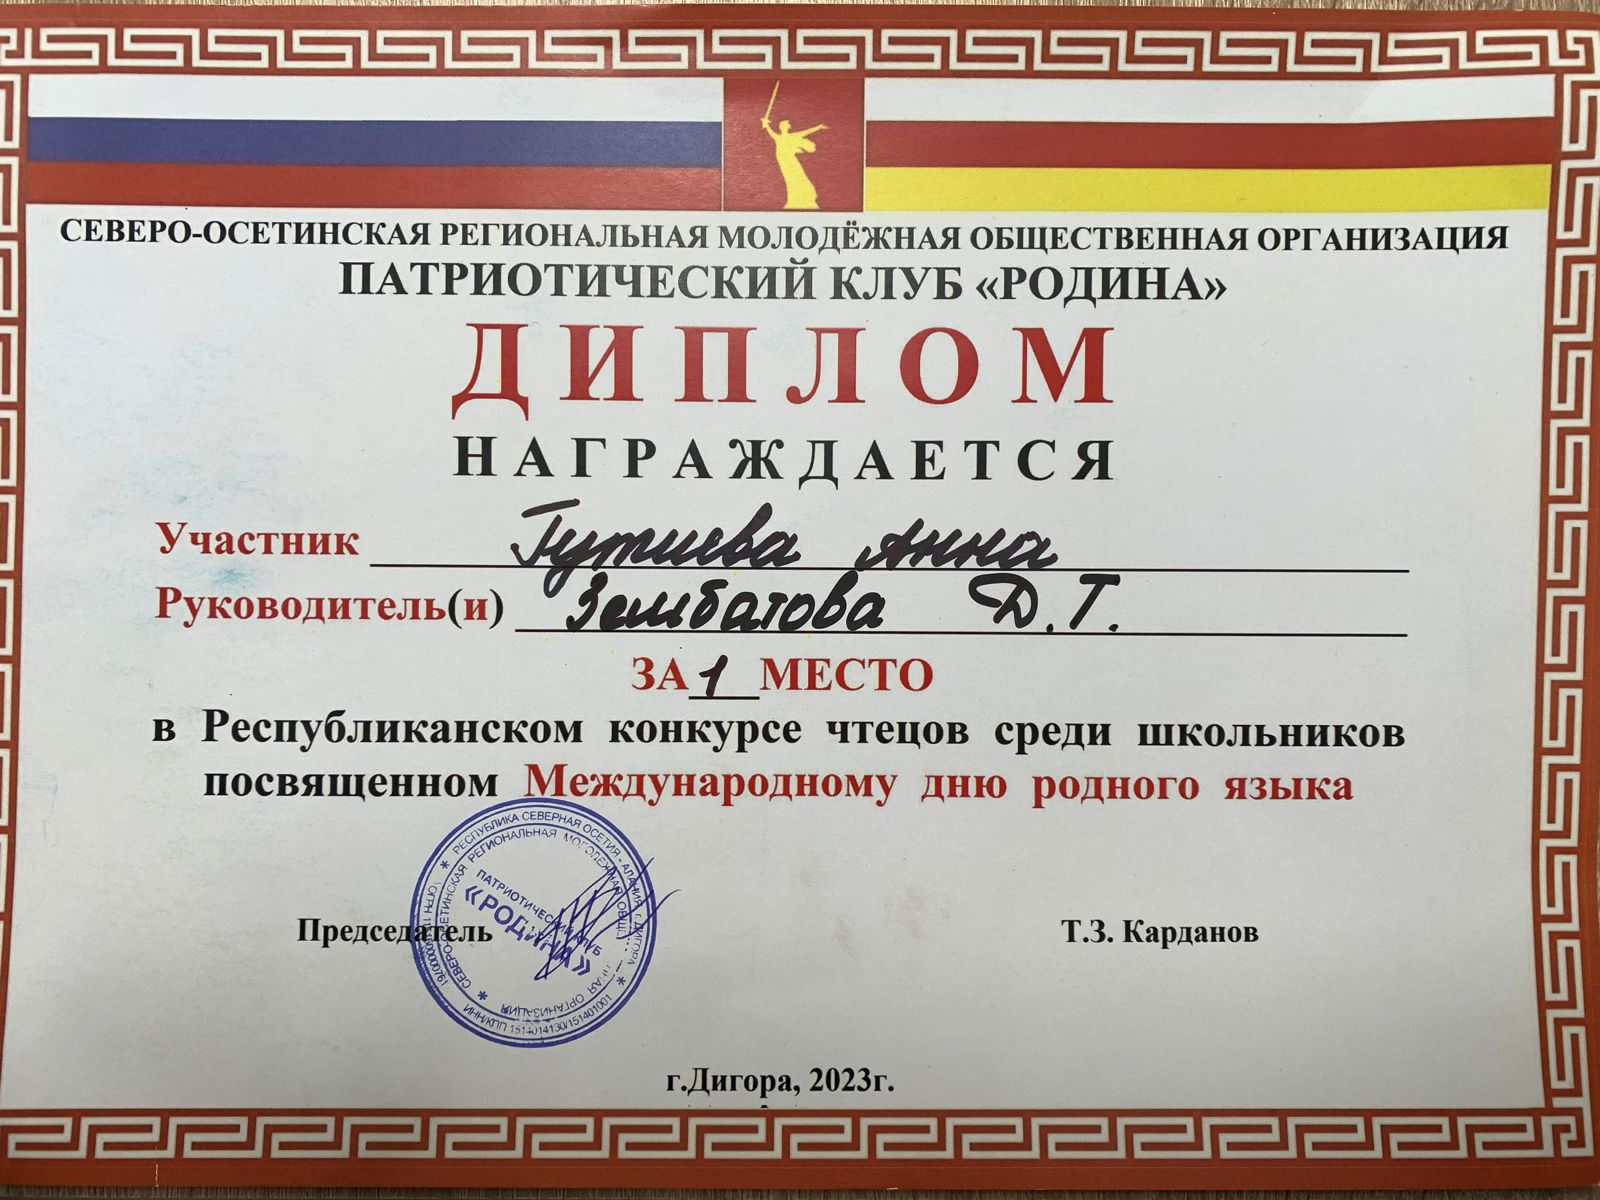 СЕВЕРО-ОСЕТИНСКАЯ РЕГИОНАЛЬНАЯ МОЛОДЁЖНАЯ ОБЩЕСТВЕННАЯ ОРГАНИЗАЦИЯ
ПАТРИОТИЧЕСКИЙ КЛУБ «РОДИНА»
ДИПЛОМ
НАГРАЖДАЕТСЯ
Участник Гутиева Анна
Руководитель(и) Зембатова Д.Т.
ЗА 1 МЕСТО
в Республиканском конкурсе чтецов среди школьников
посвященном Международному дню родного языка
РЕСПУБЛИКА СЕВЕРНАЯ ОСЕТИЯ - АЛАНИЯ г. ДИГОРА
ИНН/КПП 1514014130/151401001
СЕВЕРО-ОСЕТИНСКАЯ РЕГИОНАЛЬНАЯ МОЛОДЕЖНАЯ ОРГАНИЗАЦИЯ
ПАТРИОТИЧЕСКИЙ КЛУБ
«РОДИНА»
Председатель Т.З. Карданов
г.Дигора, 2023г.